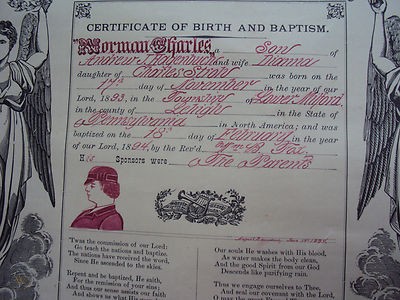 CERTIFICATE OF BIRTH AND BAPTISM.
Norman Charles, a Son of
Andrew and wife Dianna
daughter of Charles Straw was born on the
17th day of November in the year of our
Lord, 1893, in the Township of Lower Milford,
in the county of Lehigh in the State of
Pennsylvania in North America; and was
baptized on the 18th day of February in the year
of our Lord, 1894, by the Rev'd. Wm B. Fox
His Sponsors were The Parents
'Twas the commission of our Lord:
Go teach the nations and baptize.
The nations have received the word,
Since He ascended to the skies.
Repent and be baptized, He saith,
For the remission of your sins;
And thus our sense assists our faith
And shows us what His
Our souls He washes with His blood,
As water makes the body clean,
And the good Spirit from our God
Descends like purifying rain.
Thus we engage ourselves to Thee,
And seal our covenant with the Lord,